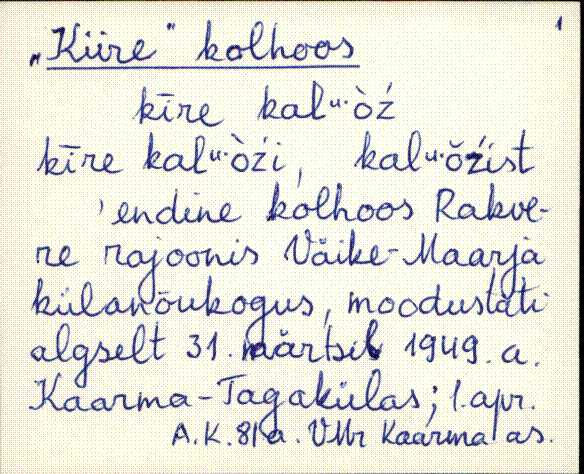 1
„Kiire" kolhoos
kīre kalᵘ·òź
kīre kalᵘ·òźi, kalᵘ·ŏźist
'endine kolhoos Rakve-
re rajoonis Väike-Maarja
külanõukogus, moodustati
algselt 31. märtsil 1949. a.
Kaarma-Tagakülas; 1. apr.
A.K. 81 a. VMr Kaarma as.